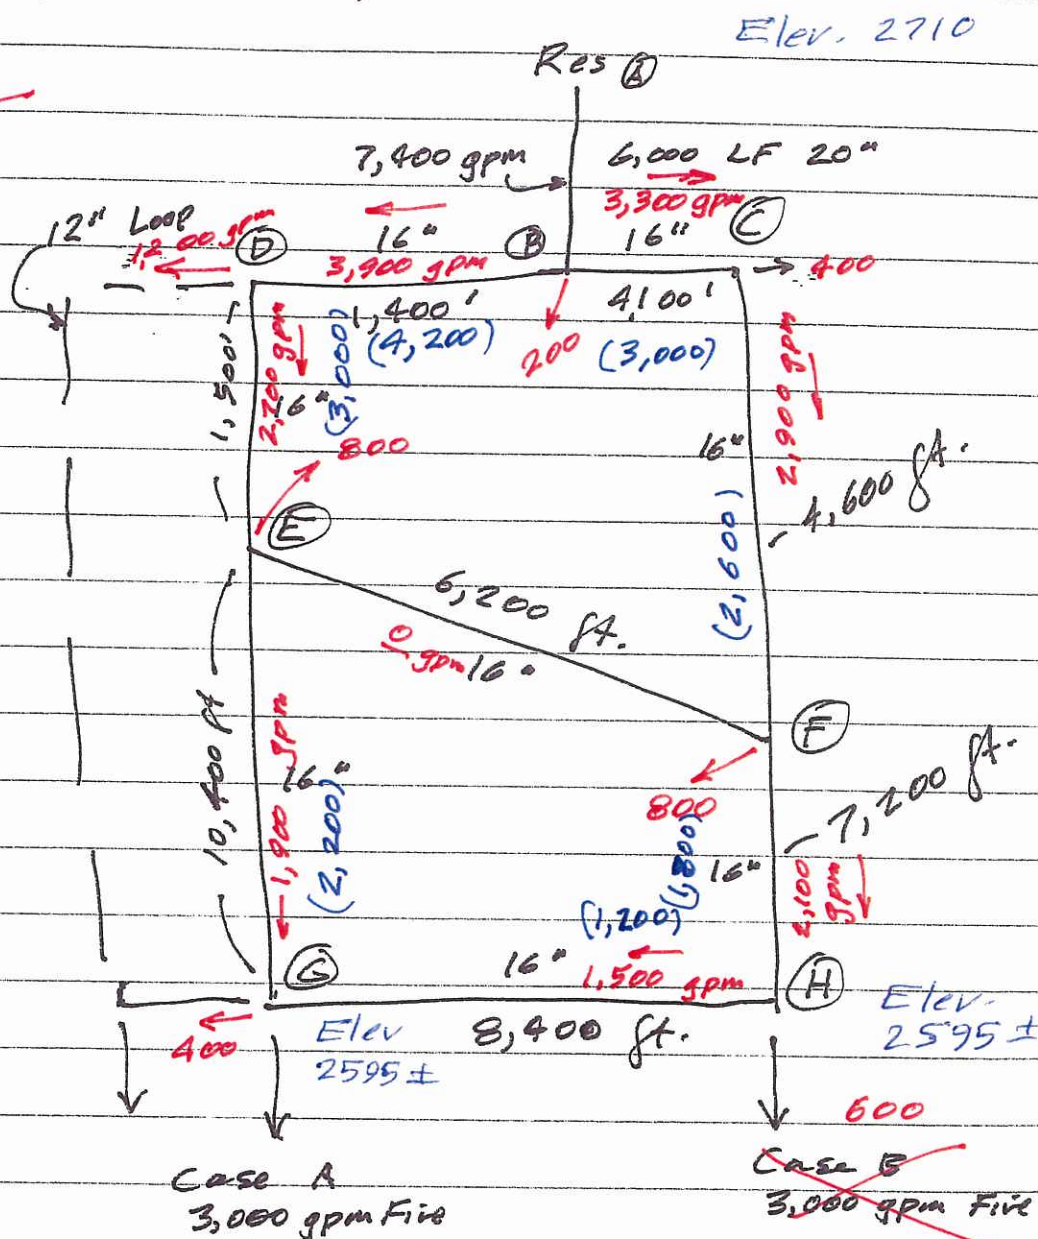 Elev. 2710
Res A
7,400 gpm
6,000 LF 20"
3,300 gpm
12" Loop
1,200 gpm
D
16"
B
16"
C
3,900 gpm
400
1,400'
4,100'
(4,200)
200
(3,000)
1,500'
2,700 gpm
16"
(3,000)
2,900 gpm
800
16"
4,600 ft.
E
(2,600)
6,200 ft.
0 gpm
16"
F
10,400 ft
1,900 gpm
16"
(2,200)
800
7,200 ft.
(1,800)
16"
2,100 gpm
(1,200)
G
16"
1,500 gpm
H
Elev.
2595 ±
400
Elev
2595 ±
8,400 ft.
600
Case A
3,000 gpm Fire
Case B
3,000 gpm Fire